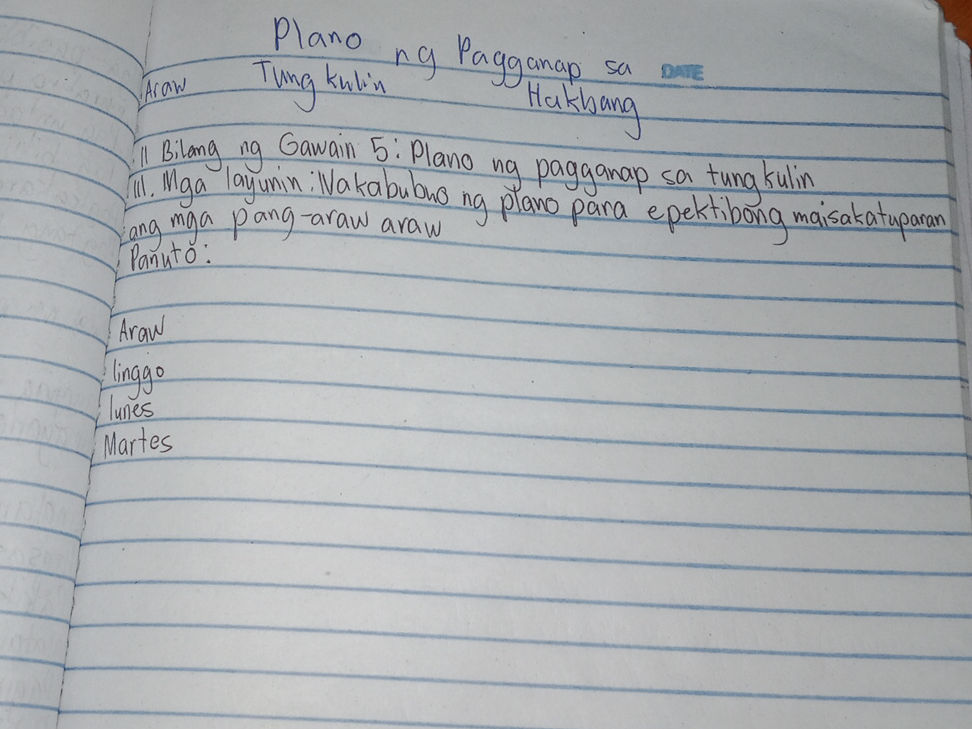 Plano ng Pagganap sa DATE
Araw Tungkulin Hakbang
II Bilang ng Gawain 5: Plano ng pagganap sa tungkulin
III. Mga layunin: Nakabubuo ng plano para epektibong maisakatuparan
ang mga pang-araw araw
Panuto:
Araw
linggo
lunes
Martes